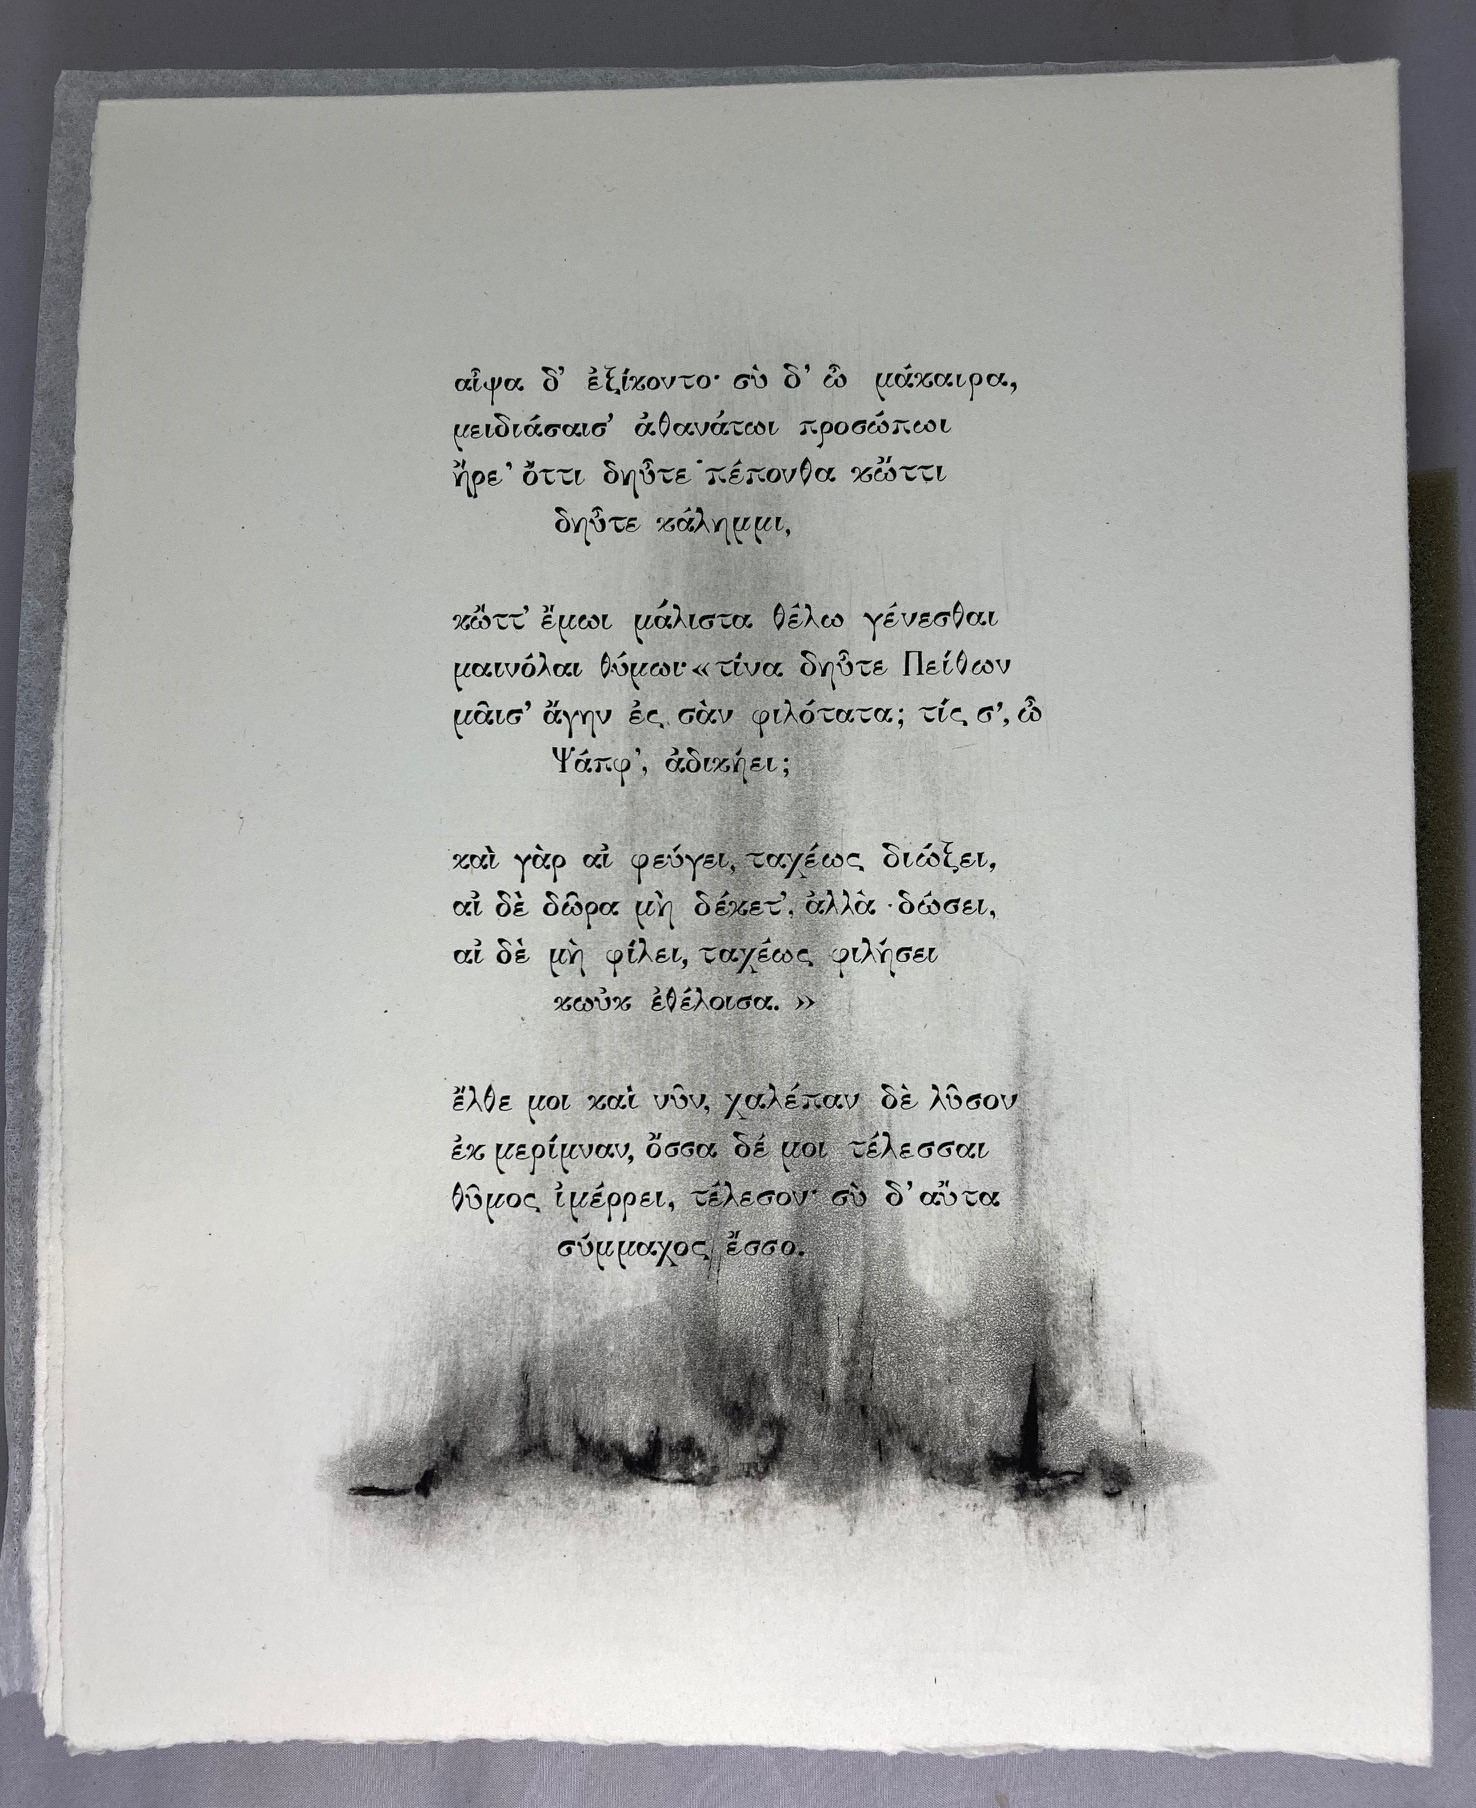 αἶψα δ' ἐξίκοντο· σὺ δ' ὦ μάκαιρα,
μειδιάσαισ' ἀθανάτωι προσώπωι
ἤρε' ὄττι δηὖτε πέπονθα κὤττι
δηὖτε κάλημμι,
κὤττ' ἔμωι μάλιστα θέλω γένεσθαι
μαινόλαι θύμωι· «τίνα δηὖτε Πείθων
μᾶισ' ἄγην ἐς σὰν φιλότατα; τίς σ', ὦ
Ψάπφ', ἀδικήει;
καὶ γὰρ αἰ φεύγει, ταχέως διώξει,
αἰ δὲ δῶρα μὴ δέκετ', ἀλλὰ δώσει,
αἰ δὲ μὴ φίλει, ταχέως φιλήσει
κωὐκ ἐθέλοισα.»
ἔλθε μοι καὶ νῦν, χαλέπαν δὲ λῦσον
ἐκ μερίμναν, ὄσσα δέ μοι τέλεσσαι
θῦμος ἰμέρρει, τέλεσον· σὺ δ' αὔτα
σύμμαχος ἔσσο.